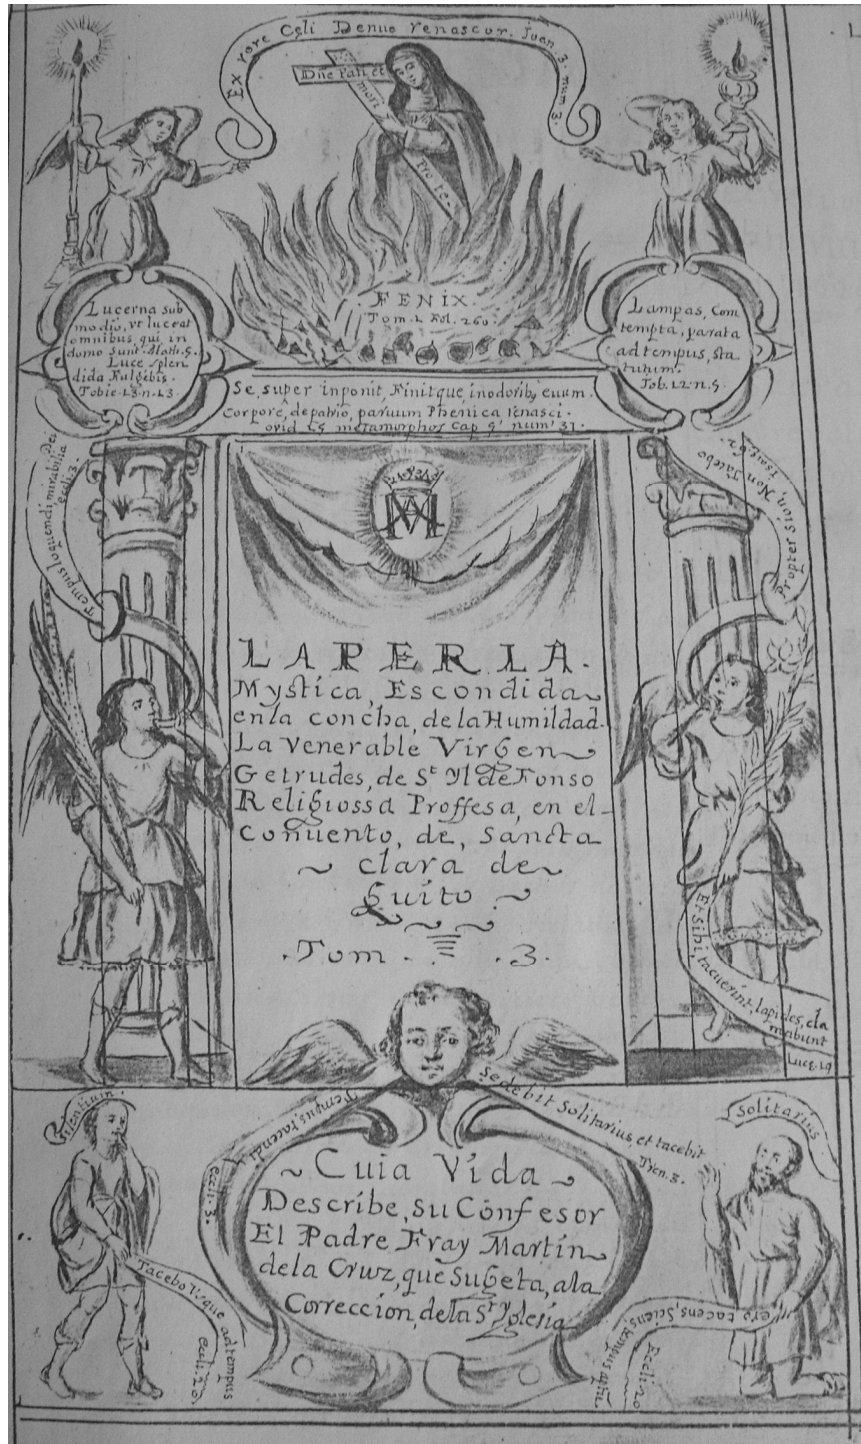 Ex rore Cęli Denuo renascor. Joan. 3. num 3.
Dñe Pati, et
mori
FENIX.
Tom. 1. Fol. 260.
Lucerna sub
modio, vt luceat
omnibus, qui in
domo sunt. Math. 5.
Luce splen
dida Fulgebis.
Tobie. 13. n. 13.
Lampas, Com
tempta, parata
ad tempus, sta
tutum.
Job. 12. n. 5.
Se, super inponit, Finitque, in odorib9 euum.
Corpore, de patrio, paruum Phenica renasci.
ovid 15 metamorphos Cap 9 num 31.
Tempus loquendi, mirabilia Dei
eccli. 3.
Propter Sion, Non Tacebo
MA
LA PERLA.
Mystica, Escondida
en la concha, de la Humildad.
La Venerable Virgen
Getrudes, de St Yldefonso
Religiossa Proffesa, en el
Conuento, de, Sancta
clara de
Quito.
.Tom. .3.
Et Si hi, tacuerint, lapides, cla
mabunt
Luce. 19
Silentium.
Tempus, tacendi.
eccli. 3.
Sedebit Solitarius, et tacebit
Tren. 3.
Solitarius
Cuia Vida
Describe, su Confesor
El Padre Fray Martin
de la Cruz, que Sugeta, a la
Correccion, de la Sta Yglesia
Tacebo Vsque ad tempus
eccli. 20
tacens, Sciens, tempus
Eccli. 20